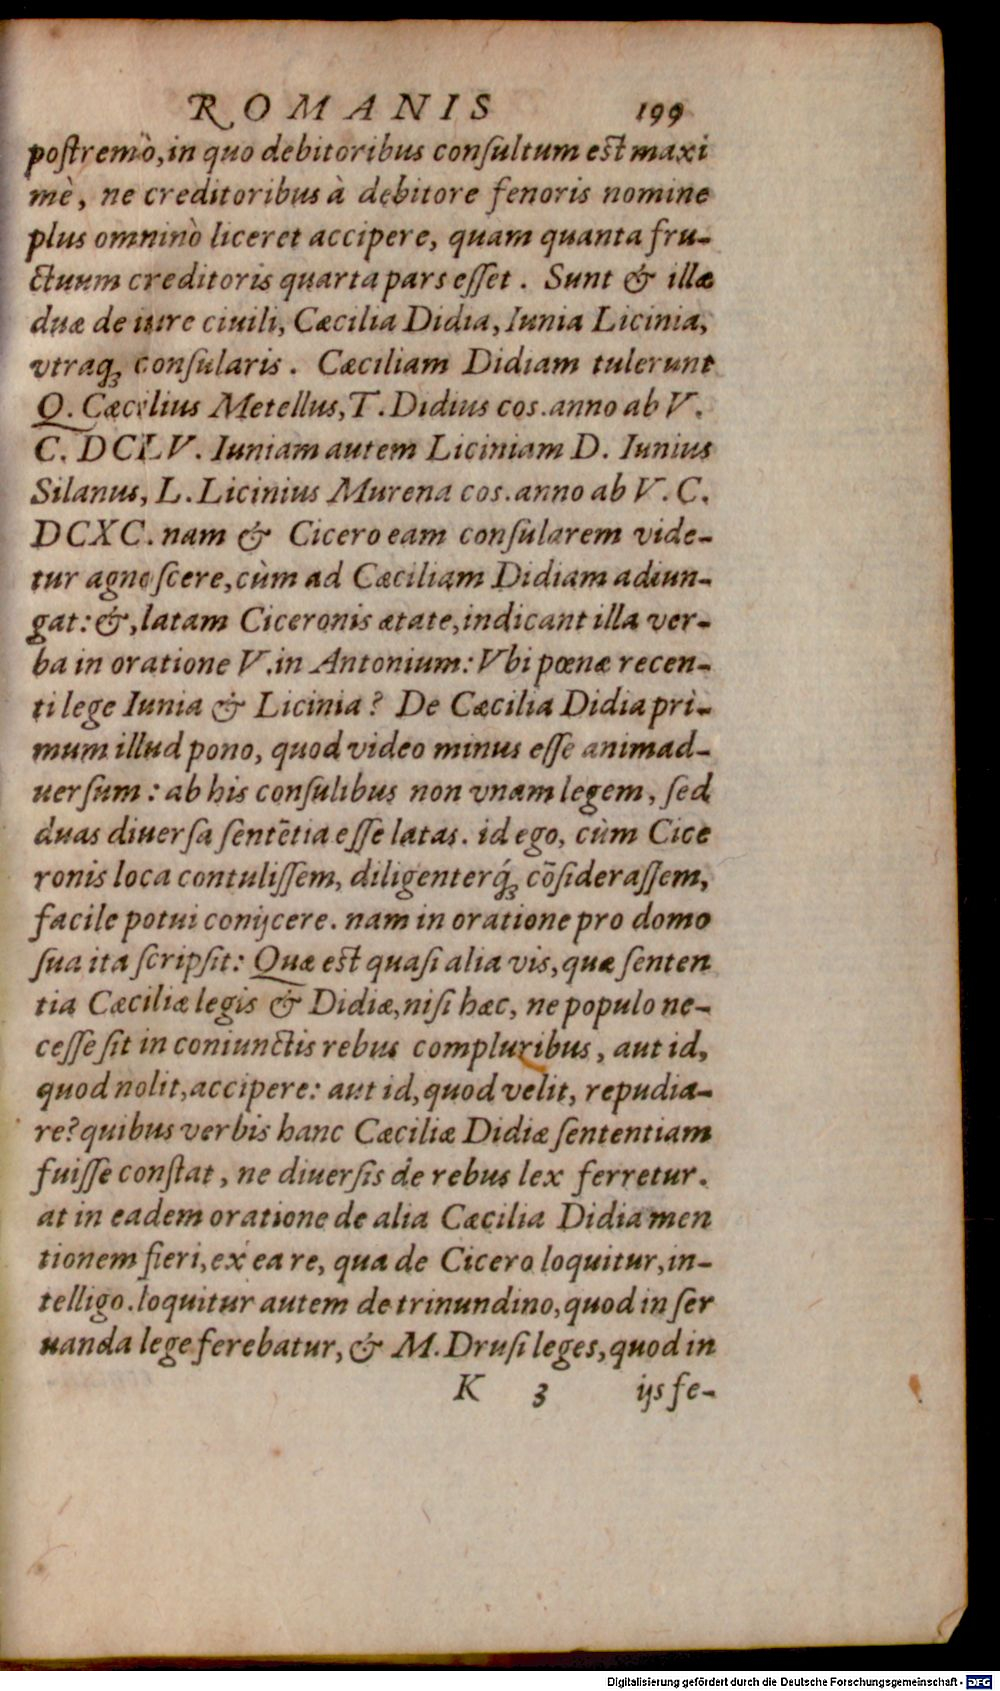 ROMANIS 199
postremò, in quo debitoribus consultum est maxi
mè, ne creditoribus à debitore fenoris nomine
plus omninò liceret accipere, quam quanta fru-
ctuum creditoris quarta pars esset. Sunt & illæ
duæ de iure ciuili, Cæcilia Didia, Iunia Licinia,
vtraq; consularis. Cæciliam Didiam tulerunt
Q. Cæcilius Metellus, T. Didius cos. anno ab V.
C. DCLV. Iuniam autem Liciniam D. Iunius
Silanus, L. Licinius Murena cos. anno ab V. C.
DCXC. nam & Cicero eam consularem vide-
tur agnoscere, cùm ad Cæciliam Didiam adiun-
gat: &, latam Ciceronis ætate, indicant illa ver-
ba in oratione V. in Antonium: Vbi pœnæ recen-
ti lege Iunia & Licinia? De Cæcilia Didia pri-
mum illud pono, quod video minus esse animad-
uersum: ab his consulibus non vnam legem, sed
duas diuersa sentētia esse latas. id ego, cùm Cice
ronis loca contulissem, diligenterq́; cōsiderassem,
facile potui conijcere. nam in oratione pro domo
sua ita scripsit: Quæ est quasi alia vis, quæ senten
tia Cæciliæ legis & Didiæ, nisi hæc, ne populo ne-
cesse sit in coniunctis rebus compluribus, aut id,
quod nolit, accipere: aut id, quod velit, repudia-
re? quibus verbis hanc Cæciliæ Didiæ sententiam
fuisse constat, ne diuersis de rebus lex ferretur.
at in eadem oratione de alia Cæcilia Didia men
tionem fieri, ex ea re, qua de Cicero loquitur, in-
telligo. loquitur autem de trinundino, quod in ser
uanda lege ferebatur, & M. Drusi leges, quod in
K 3 ijs fe-
Digitalisierung gefördert durch die Deutsche Forschungsgemeinschaft - DFG